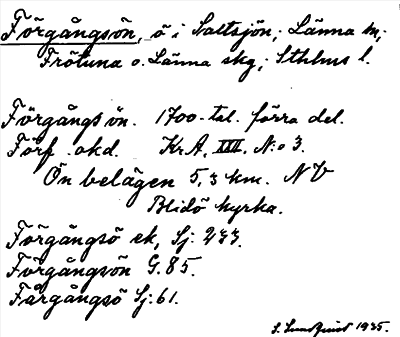 Förgångsön, ö i Saltsjön; Länna sn;
Frötuna o. Länna skg; Sthlms l.
Förgångsön. 1700-tal. förra del.
Förf. okd. Kr.A. XIII. N:o 3.
Ön belägen 5,3 km. NV
Blidö kyrka.
Förgångsö ek, Sj: 233.
Förgångsön G. 85.
Färgångsö Sj: 61.
S. Lundquist 1935.